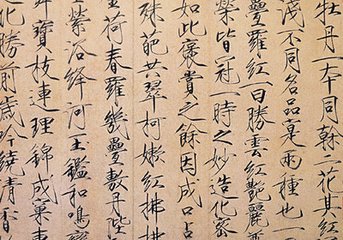 牡丹一本同榦二花其紅
淺不同名品實兩種也一
疊羅紅一曰勝雲紅艷麗尊
榮皆冠一時之妙造化密
如此褒賞之餘因成口占
殊葩共翠柯嫩紅拂拂
荷春羅幾疊敷丹陛
重縈浴絳河玉鑑和鳴鸞
寶枝連理錦成窠東
化勝前歲吟繞清香